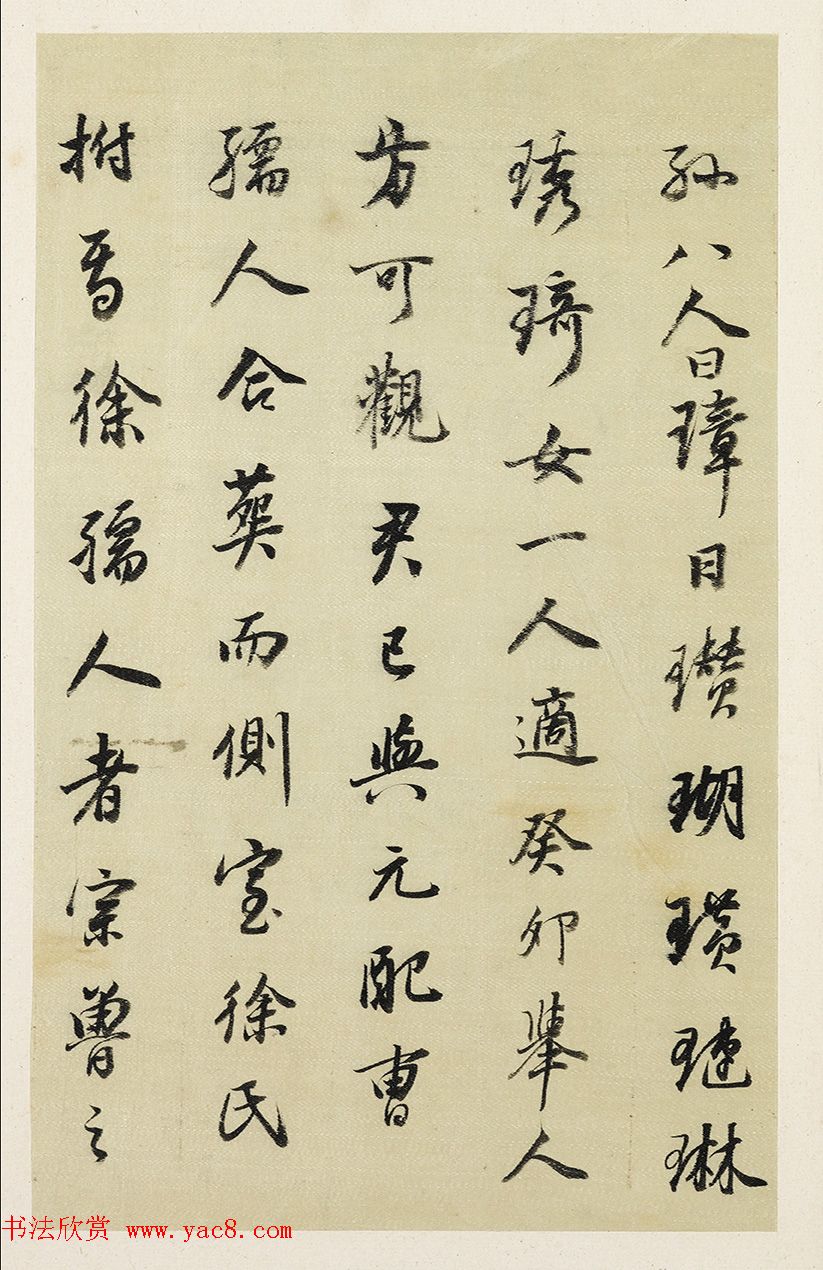 孫八人曰璋曰瓚瑚璜璉琳
琇琦女一人適癸卯舉人
可觀君已與元配曹
孺人合葬而側室徐氏
拊焉徐孺人者宗魯之
书法欣赏 www.yac8.com